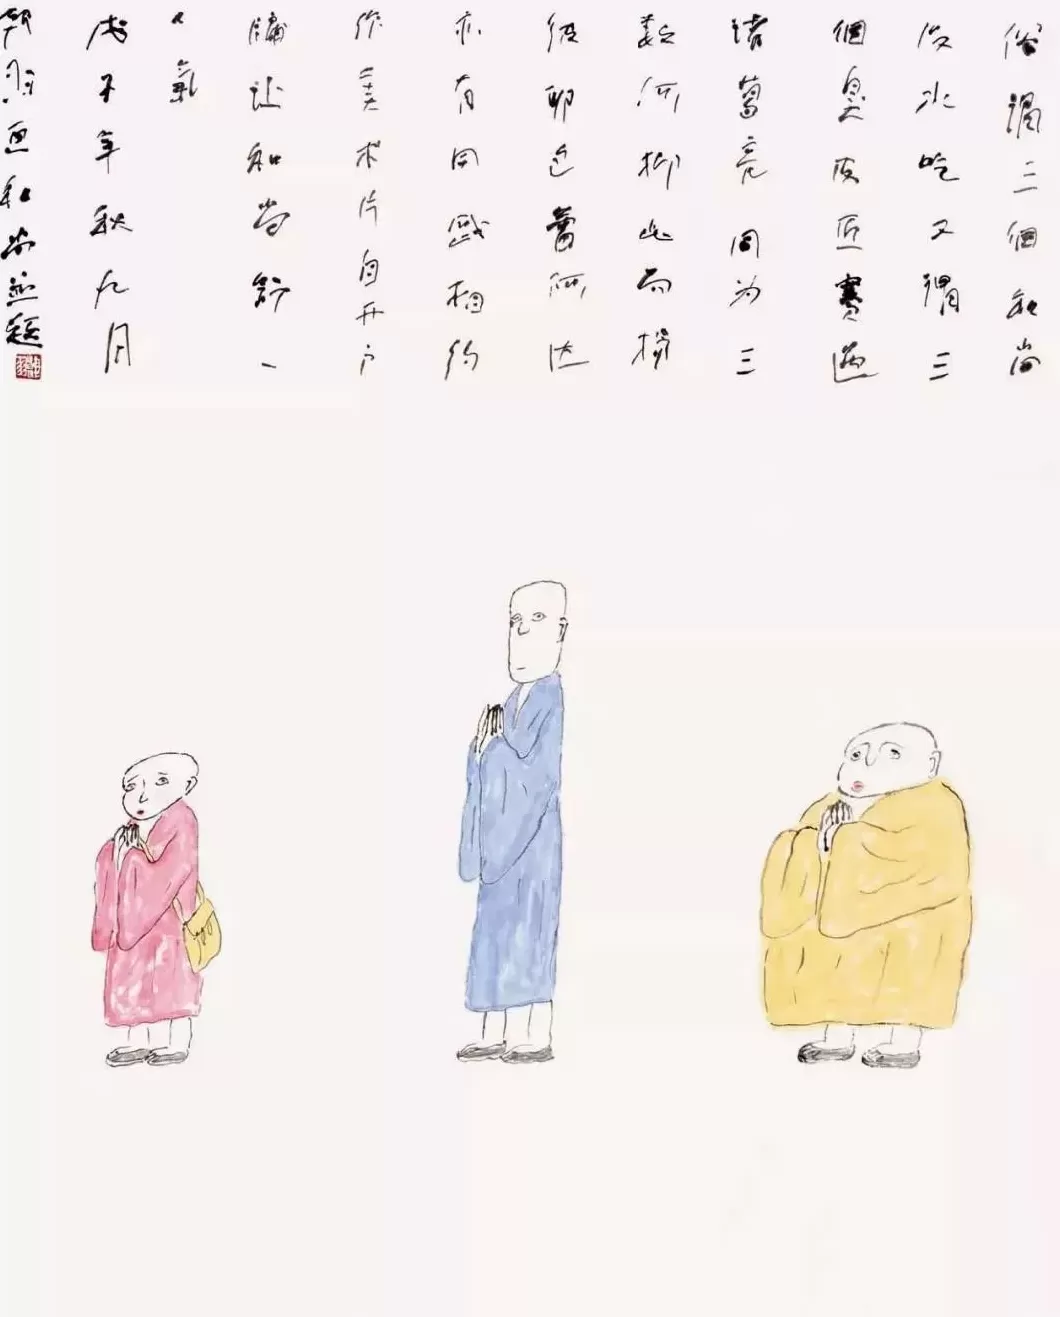 俗謂三個和尚
没水吃又謂三
個臭皮匠賽過
諸葛亮同为三
數何抑此而揚
彼耶包蕾阿达
亦有同感相約
作美术片自开户
牖让和尚舒一
口氣
戊子年秋九月
韩羽画和尚並题